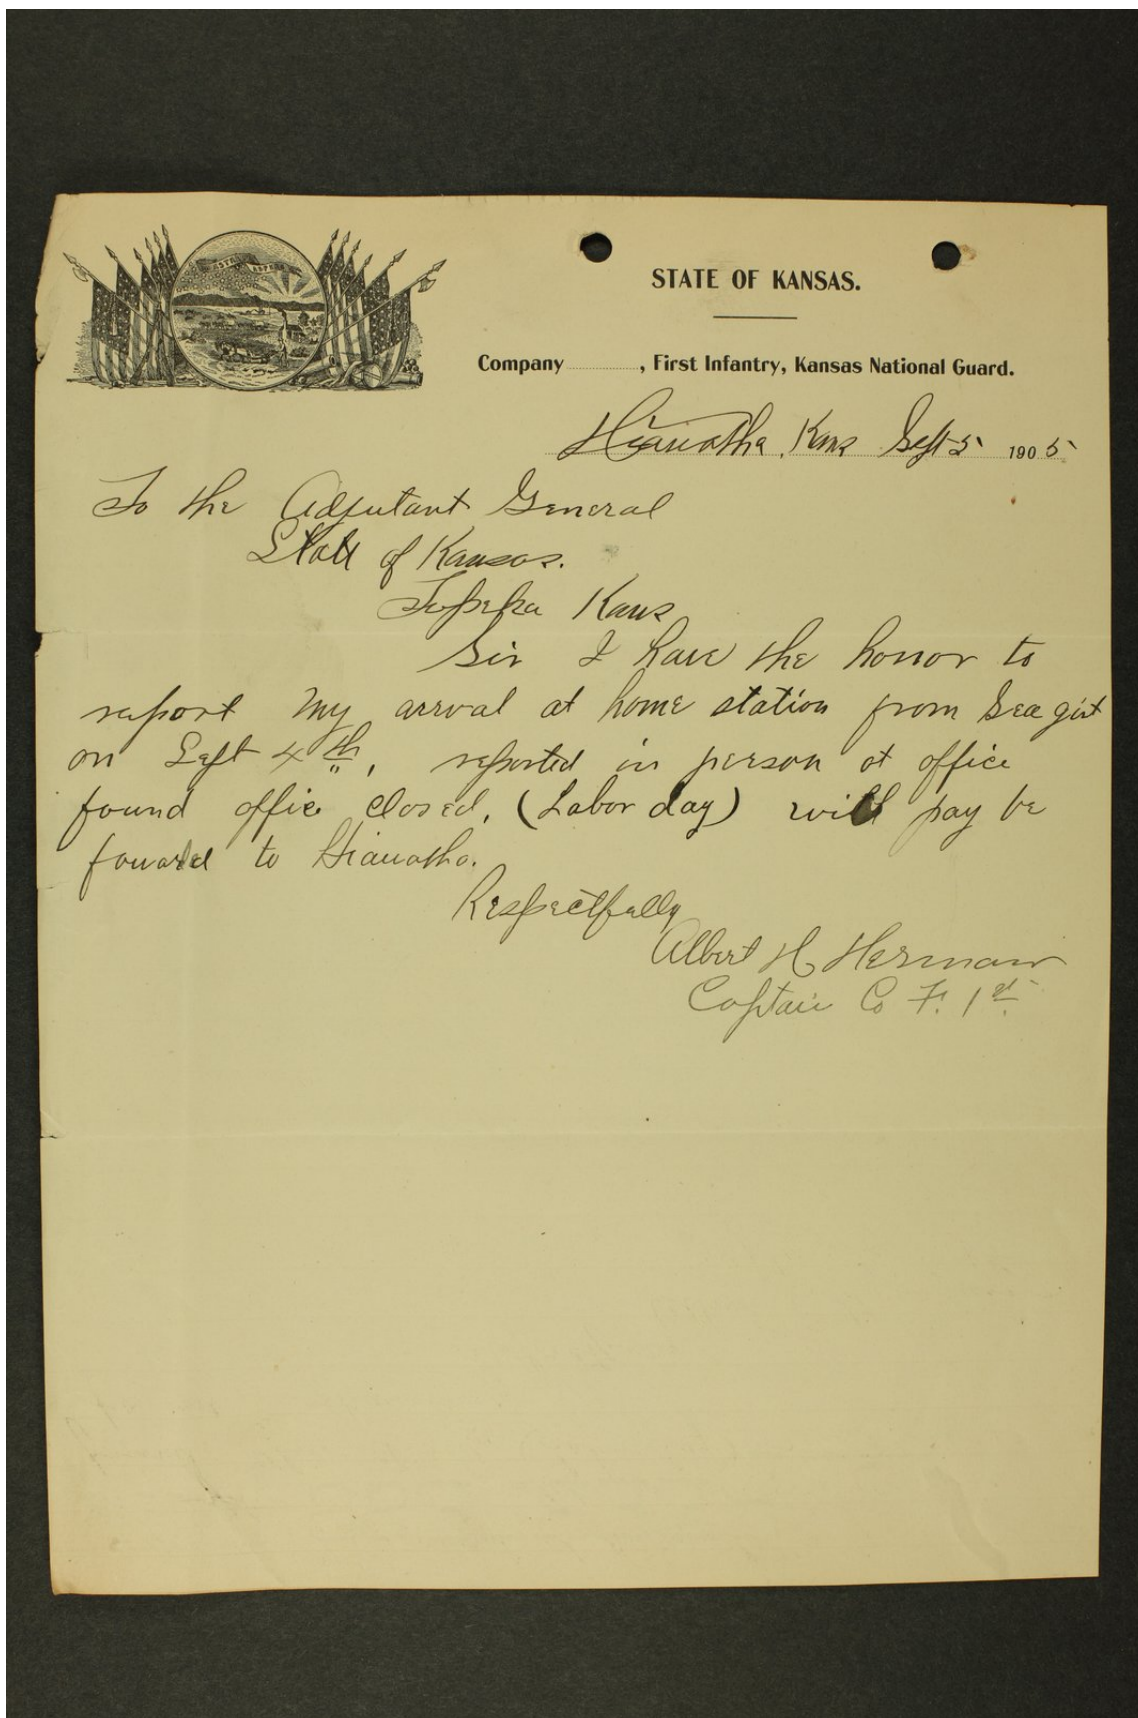 STATE OF KANSAS.
Company ............, First Infantry, Kansas National Guard.
Hiawatha, Kans Sept 5 1905
To the Adjutant General
State of Kansas.
Topeka Kans
Sir I have the honor to
report my arrval at home station from Sea girt
on Sept 4th, reported in person at office
found offic closed, (Labor day) will pay be
fowarded to Hiawatha.
Respectfully
Albert H Herman
Captain Co F. 1st.